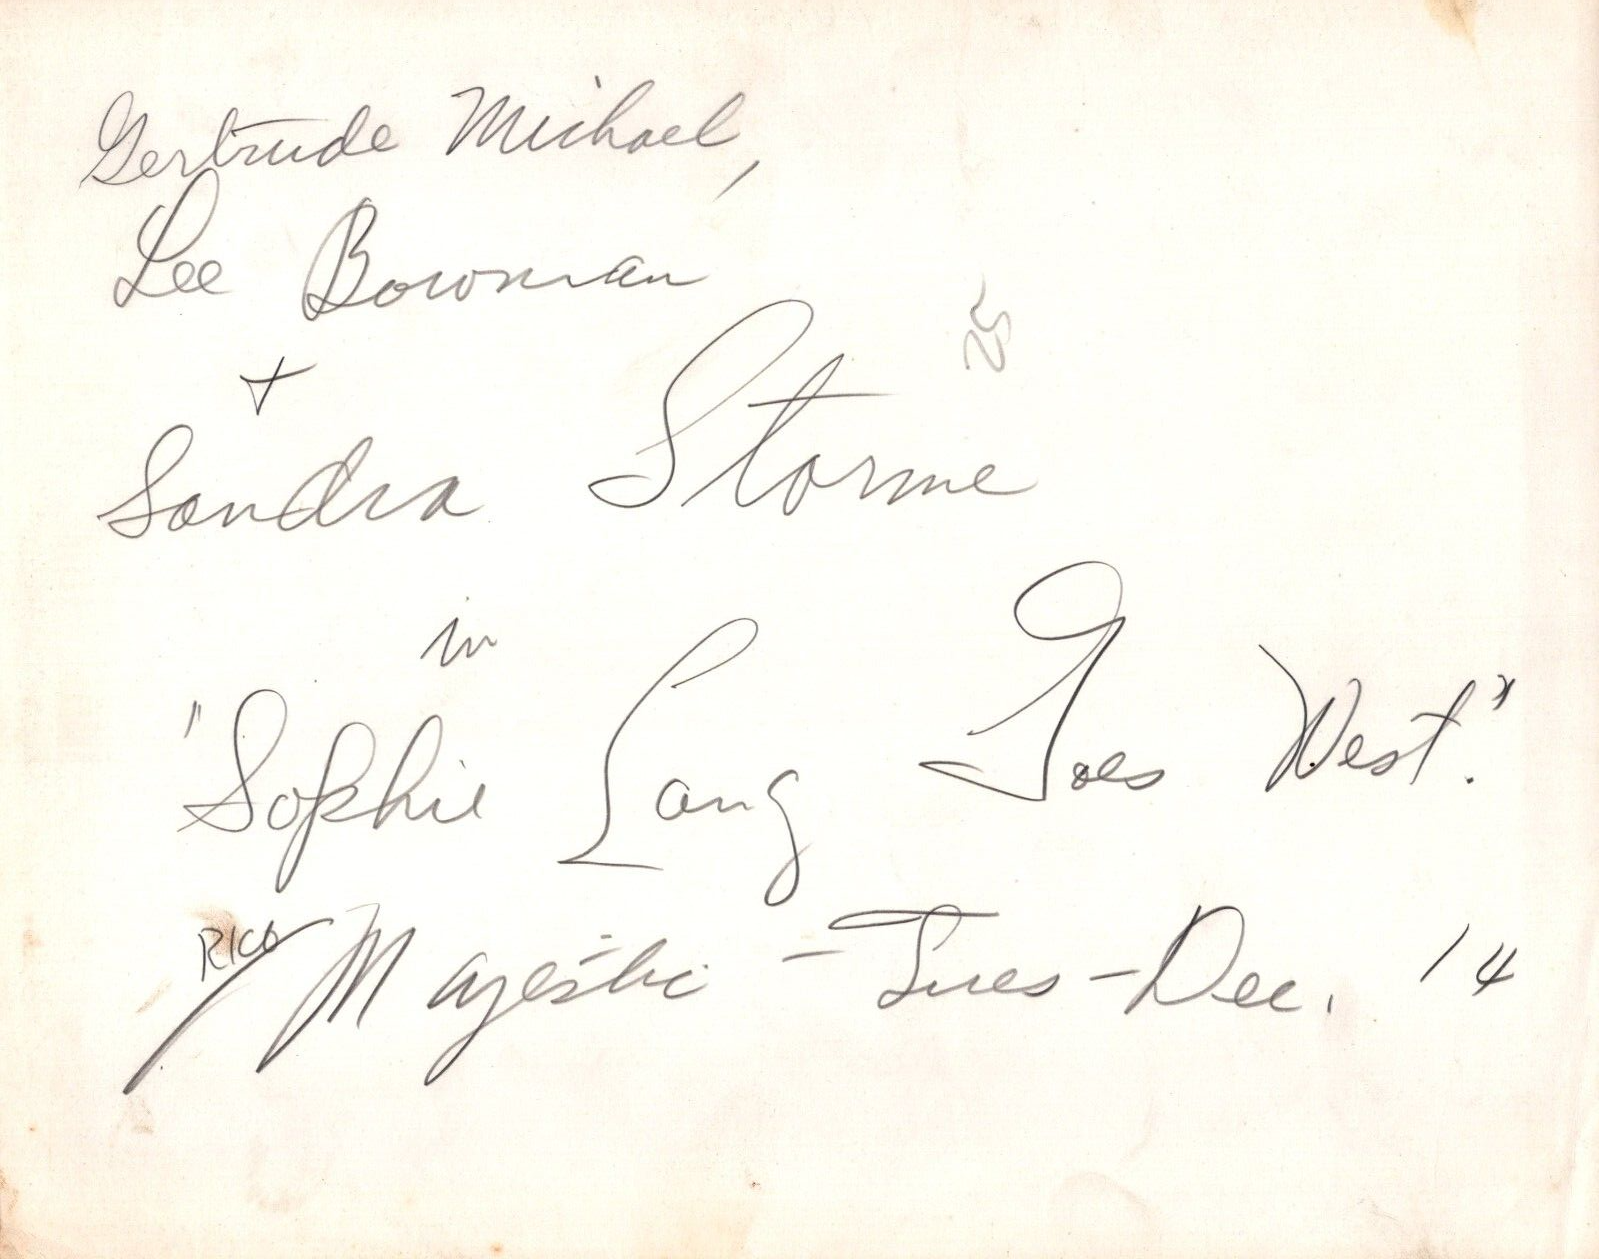 Gertrude Michael,
Lee Bowman
+
Sandra Storme
25
in
"Sophie Lang Goes West."
RICO
Majestic - Tues - Dec. 14